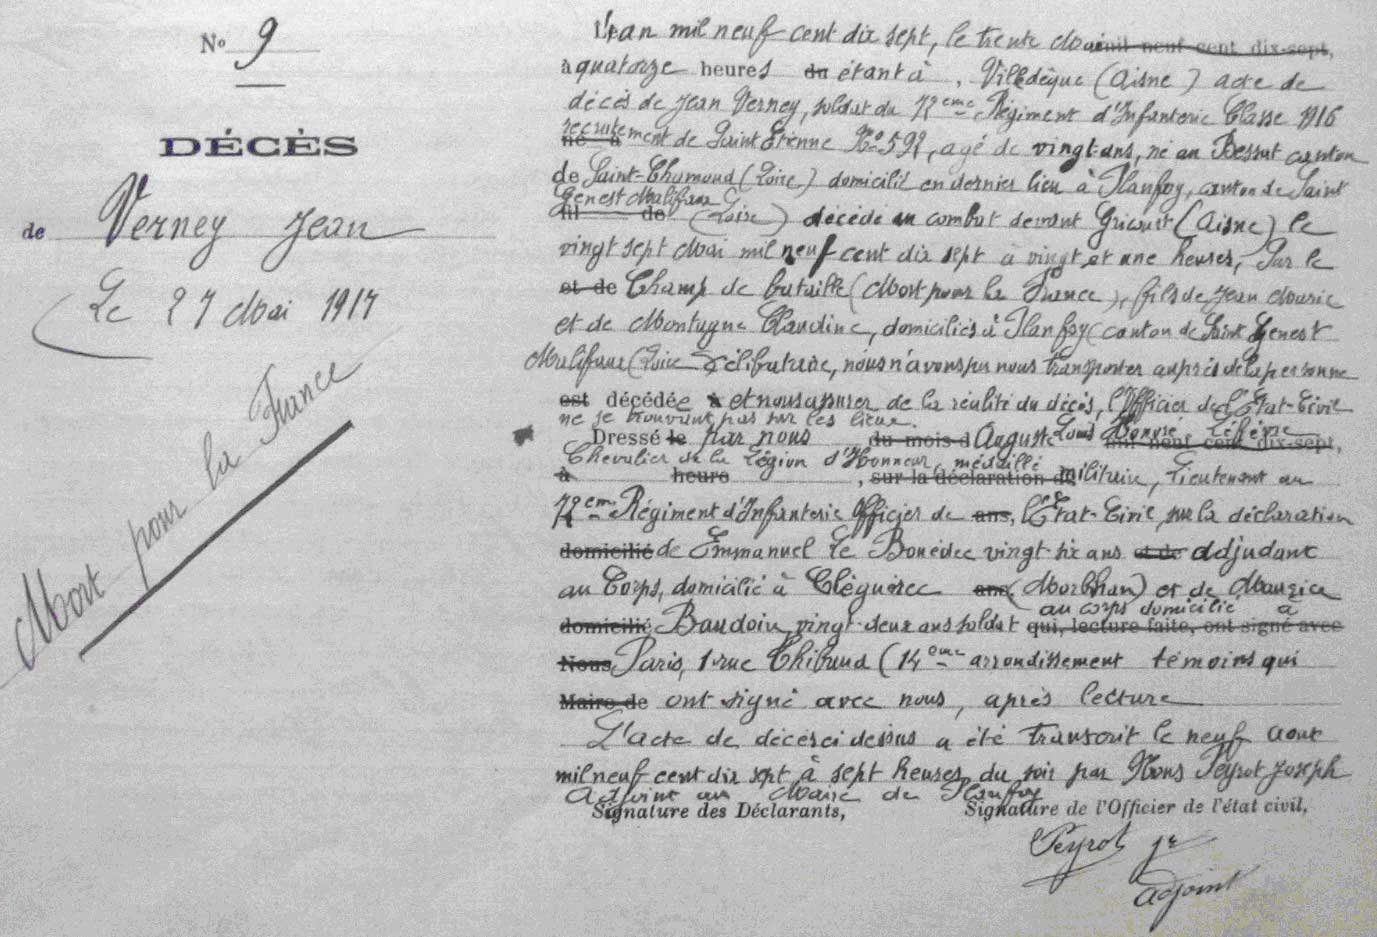 N° 9
DÉCÈS
de Verney Jean
Le 27 Mai 1917
Mort pour la France
L'an mil neuf cent dix sept, le trente Mai mil neuf cent dix-sept,
à quatorze heures du étant à , Villedèque (Aisne) acte de
décès de Jean Verney, soldat du 72eme Régiment d'Infanterie Classe 1916
recrutement de Saint Etienne No 592, agé de vingt ans, né au Bessat canton
né à
de Saint-Chamond (Loire) domicilié en dernier lieu à Planfoy, canton de Saint
Genest Malifaux
fil de (Loire) décédé au combat devant Gricourt (Aisne) le
vingt sept Mai mil neuf cent dix sept à vingt et une heures, Sur le
et de Champ de bataille (Mort pour la France), fils de Jean Marie
et de Montagne Claudine, domiciliés à Planfoy (canton de Saint Genest
Malifaux (Loire célibataire, nous n'avons pu nous transporter auprès de la personne
est décédée à et nous assurer de la réalité du décès, l'Officier de l'Etat-Civil
ne se trouvant pas sur les lieux.
Dressé le par nous du mois d Auguste Louis Honoré mil neuf cent dix-sept,
Chevalier de la Légion d'Honneur, médaillé
à heure , sur la déclaration de militaire, Lieutenant au
72eme Régiment d'Infanterie Officier de ans, l'Etat-Civil, sur la déclaration
domicilié de Emmanuel Le Bouédec vingt six ans et de Adjudant
au Corps, domicilié à Cléguérec ans, (Morbihan) et de Maurice
au corps domicilié à
domicilié Baudoin vingt-deux ans soldat qui, lecture faite, ont signé avec
Nous Paris, 1 rue Thibaud (14eme arrondissement témoins qui
Maire de ont signé avec nous, après lecture
L'acte de décès ci dessus a été transcrit le neuf aout
mil neuf cent dix sept à sept heures du soir par Nous Peyrot Joseph
Adjoint au Maire de Planfoy
Signature des Déclarants, Signature de l'Officier de l'état civil,
Peyrot Jh
adjoint